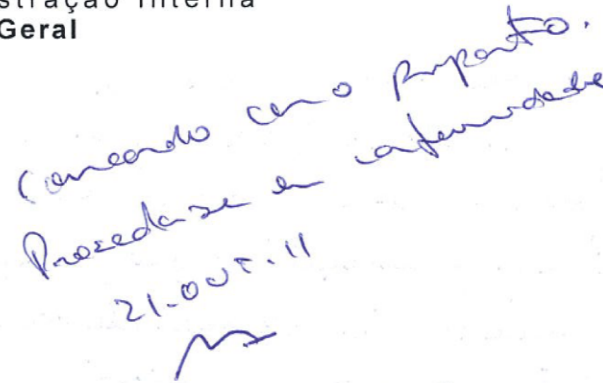 stração Interna
Geral
Concordo com o proposto.
Proceda-se em conformidade
21.OUT.11